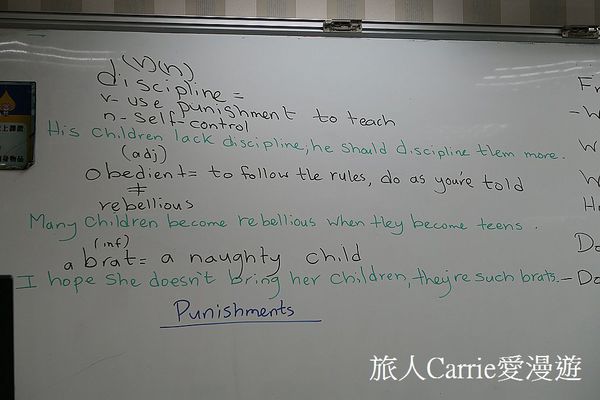 (v)(n)
discipline =
v- use punishment to teach
n- self-control
His children lack discipline, he should discipline them more.
(adj)
obedient = to follow the rules, do as you're told
≠
rebellious
Many children become rebellious when they become teens.
(inf)
a brat = a naughty child
I hope she doesn't bring her children, they're such brats.
Punishments
旅人Carrie愛漫遊